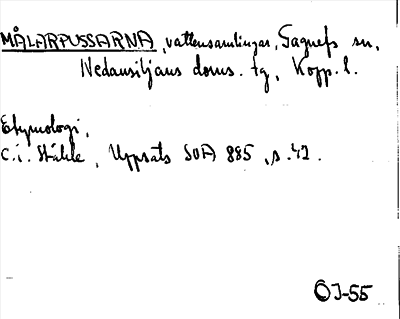 MÅLARPUSSARNA, vattensamlingar, Gagnefs sn,
Nedansiljans doms. tg, Kopp. l.
Etymologi,
C.I. Ståhle, Uppsats SOA 885, s. 42.
ÖJ-55